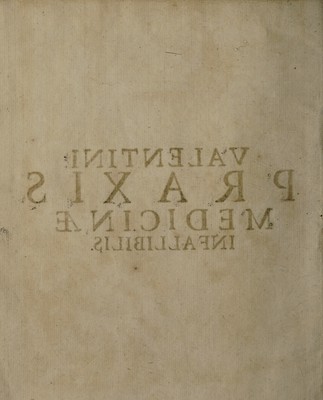 VALENTINI
PRAXIS
MEDICINÆ
INFALLIBILIS.